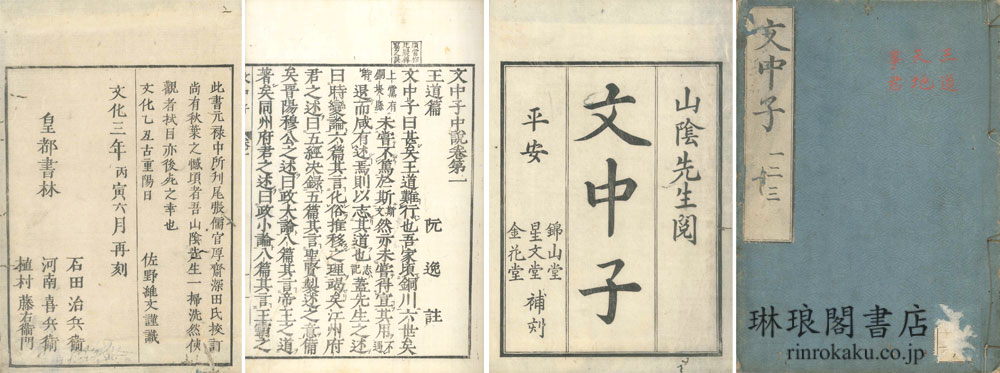 文中子 一二三
王道
天地
事君
琳琅閣書店
rinrokaku.co.jp
山陰先生閲
文中子
平安
錦山堂
星文堂
金花堂
補刻
文中子中説卷第一
王道篇
阮逸註
文中子曰甚矣王道難行也吾家頃銅川六世矣
上黨有銅堤縣
未嘗不篤於斯
然亦未嘗得宣其用
退而咸有述焉則以志其道也
蓋先生之述
曰時變論六篇其言化俗推移之理竭矣江州府
君之述曰五經決錄五篇其言聖賢製述之意備
矣晉陽穆公之述曰政大論八篇其言帝王之道
著矣同州府君之述曰政小論八篇其言王霸之
此書元禄中所刋尾張儒官厚齋深田氏挍訂
尚有秋葉之憾頃者吾山陰先生一掃洗然使
觀者拭目亦後九之幸也
文化乙丑古重陽日
佐野維文謹識
文化三年丙寅六月再刻
皇都書林
石田治兵衞
河南喜兵衞
植村藤右衞門